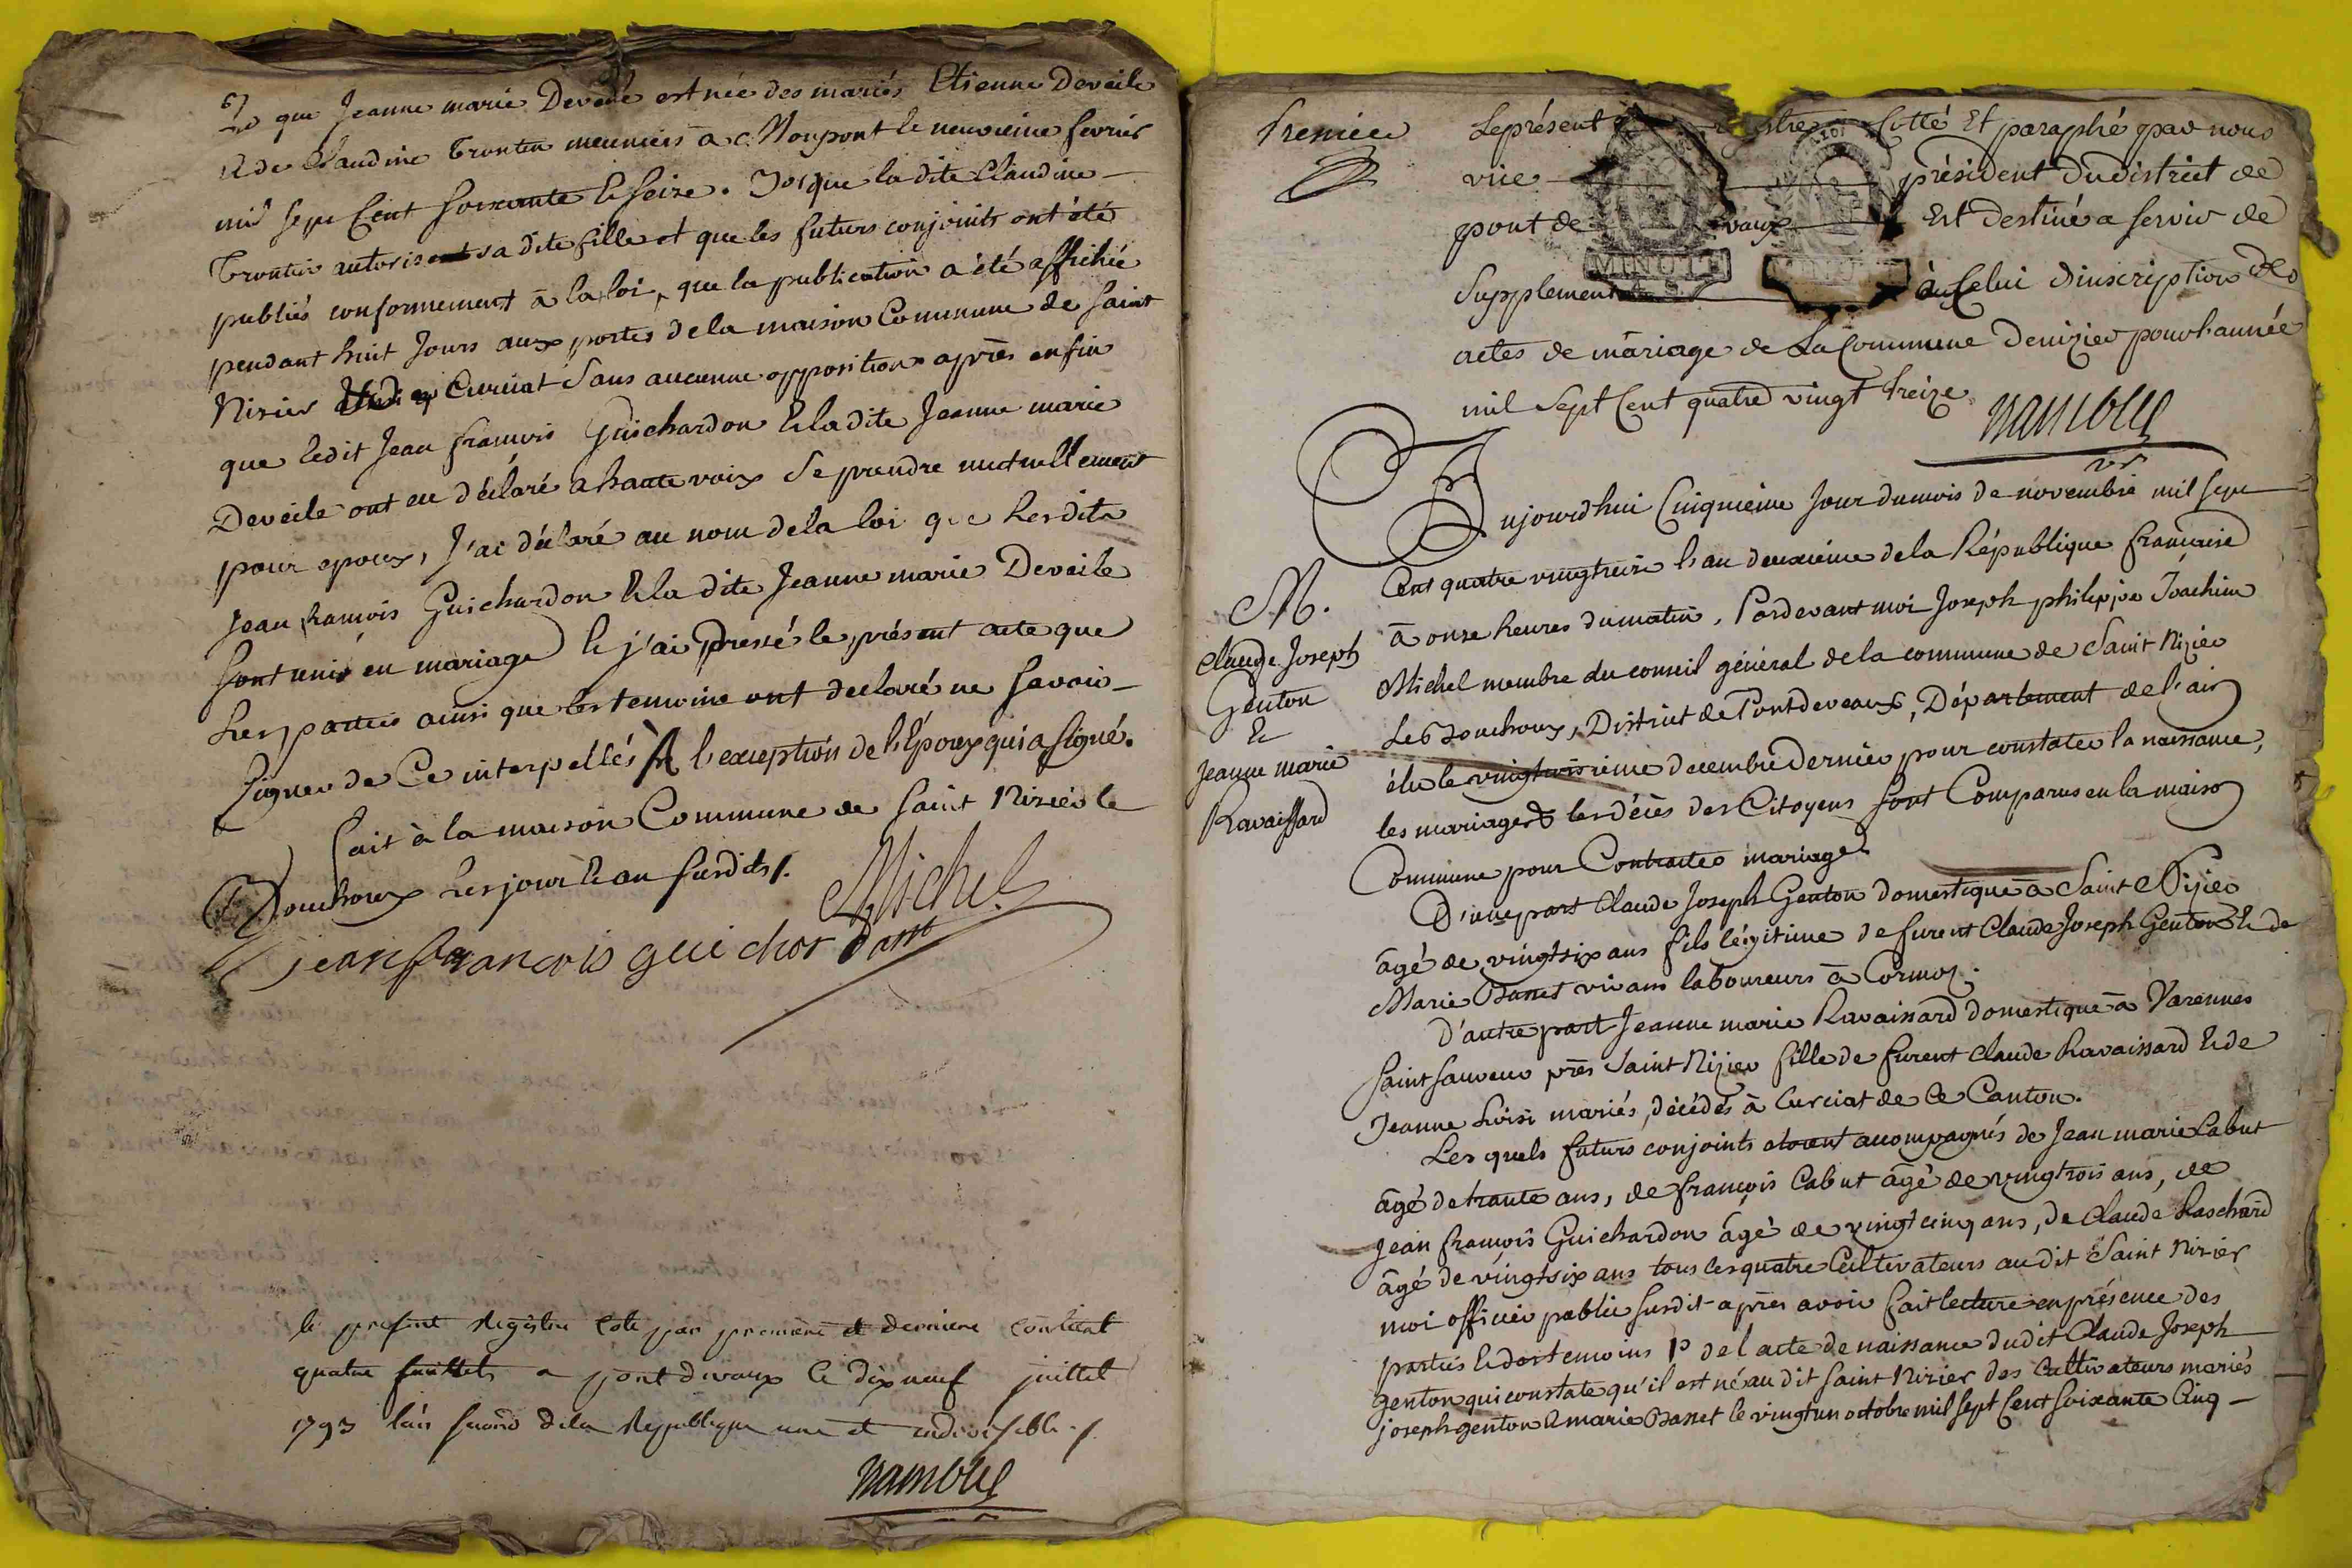 2o que Jeanne marie Deveile est née des mariés Etienne Deveile
& de Claudine Trontin meuniers à Moupont le neuvieme fevrier
mil sept Cent soixante & seize. 3o que la dite Claudine
Trontin autorise sa dite fille et que les futurs conjoints ont été
publiés conformement à la loi, que la publication a été affichée
pendant huit Jours aux portes de la maison Commune de Saint
Nisier & Curciat Sans aucunne opposition après enfin
que ledit Jean françois Guichardon & la dite Jeanne marie
Deveile ont eu déclaré a haute voix Se prendre mutuellement
pour epoux, J'ai déclaré au nom de la loi que Lesdits
Jean françois Guichardon & la dite Jeanne marie Deveile
Sont unis en mariage & j'ai Dressé le présent acte que
Les parties ainsi que les temoins ont declaré ne Savoir
Signer de Ce interpellés A l'exception de l'Epoux qui a Signé.
fait à la maison Commune de Saint Nisier le
Bouchoux Les jour & an Susdits ∫.
Michel
jean francois guichordant
le present Registre Coté par premiere et derniere Contient
quatre feuillets a pont devaux le dix neuf juillet
1793 lan second de la Republique une et indivisible ∫.
premiere
Le présent registre Cotté Et paraphé par nous
vice président du district de
pont de vaux Est destiné a servir de
Supplement à Celui d'inscription des
actes de mariage de La Commune de nizier pour l'année
mil Sept Cent quatre vingt treize
MINUTE
Aujourd'hui Cinquieme Jour du mois de novembre mil sept
Cent quatre vingt treize l'an deuxieme de la République française
à onze heures du matin, Pardevant moi Joseph philippe Joachim
Michel membre du conseil général de la commune de Saint Nizier
Le Bouchoux, District de Pontdevaux, Département de l'ain
élu le vingttroisieme decembre Dernier pour constater la naissance,
les mariages & les décès des Citoyens Sont Comparus en la maison
Commune pour Contracter mariage.
M.
Claude Joseph
Genton
&
Jeanne marie
Ravaissard
D'une part Claude Joseph Genton domestique à Saint Nizier
âgé de vingt six ans fils légitime de furent Claude Joseph Genton & de
Marie Basset vivans laboureurs à Cormoz.
D'autre part Jeanne marie Ravaissard domestique à Varennes
Saint Sauveur près Saint Nizier fille de furent Claude Ravaissard & de
Jeanne Loisi mariés, décédés à Curciat de Ce Canton.
Les quels futurs conjoints etoient accompagnés de Jean marie Cabut
âgé de trante ans, de françois Cabut âgé de vingt trois ans, de
Jean françois Guichardon âgé de vingt cinq ans, de Claude Laschard
âgé de vingt six ans tous les quatre Cultivateurs audit Saint Nizier
moi officier public Susdit après avoir fait lecture en présence des
parties & des temoins 1o de l'acte de naissance dudit Claude Joseph
Genton qui constate qu'il est né audit Saint Nizier des Cultivateurs mariés
joseph genton & marie Basset le vingt un octobre mil sept Cent soixante Cinq